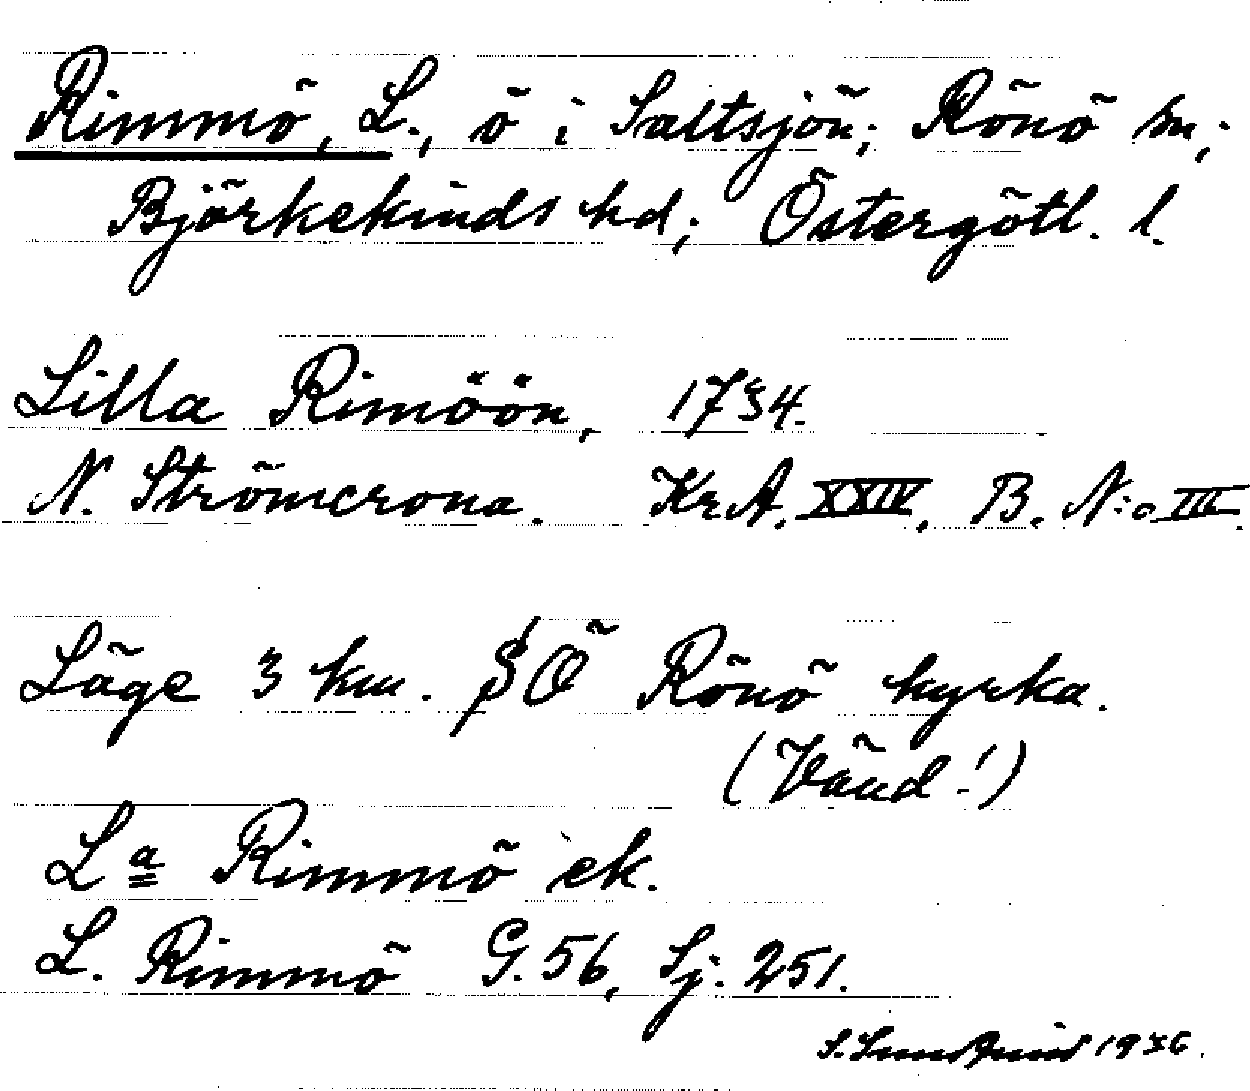 Rimmö, L., ö i Saltsjön; Rönö sn;
Björkekinds hd; Östergötl. l.
Lilla Rimöön, 1734.
N. Strömcrona. Kr.A. XXIV, B. N:o III.
Läge 3 km. SÖ Rönö kyrka.
(Vänd!)
La Rimmö ek.
L. Rimmö G. 56, Sj. 251.
1936.